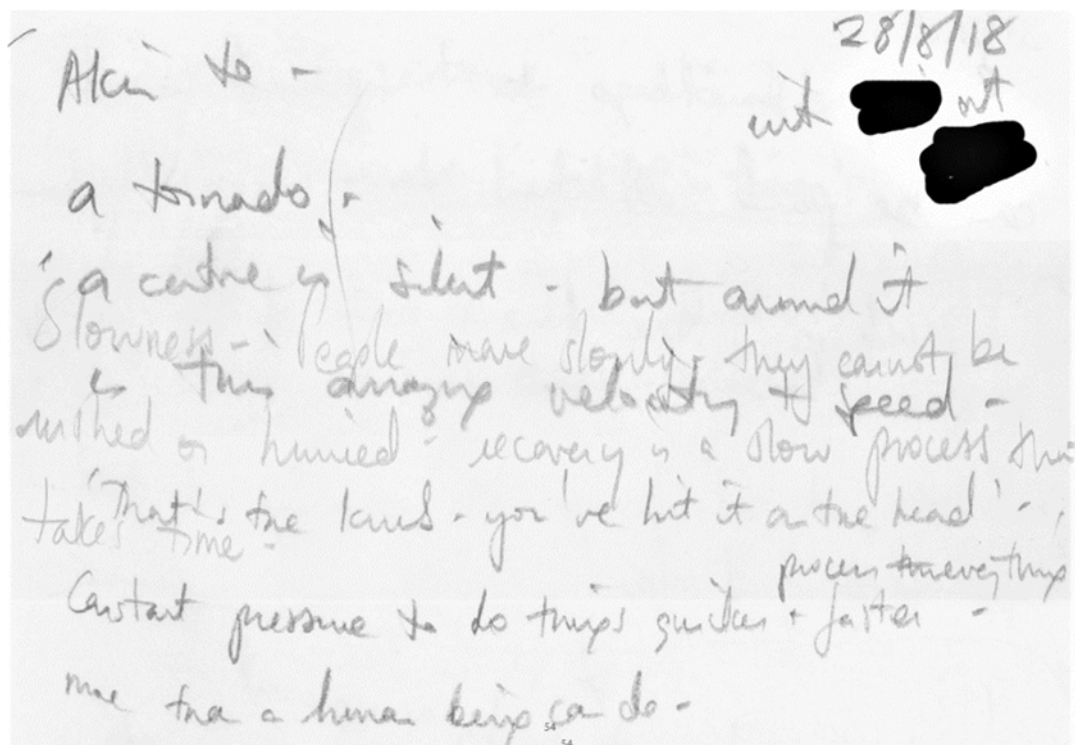 28/8/18
Akin to -
a tornado -
'a centre is silent - but around it
Slowness - People move slowly, they cannot be
is this amazing velocity + speed -
rushed or hurried - recovery is a slow process
'That's the - you've hit it on the head' -
takes time -
process everything
Constant pressure to do things quicker + faster -
more than a human being can do -
54